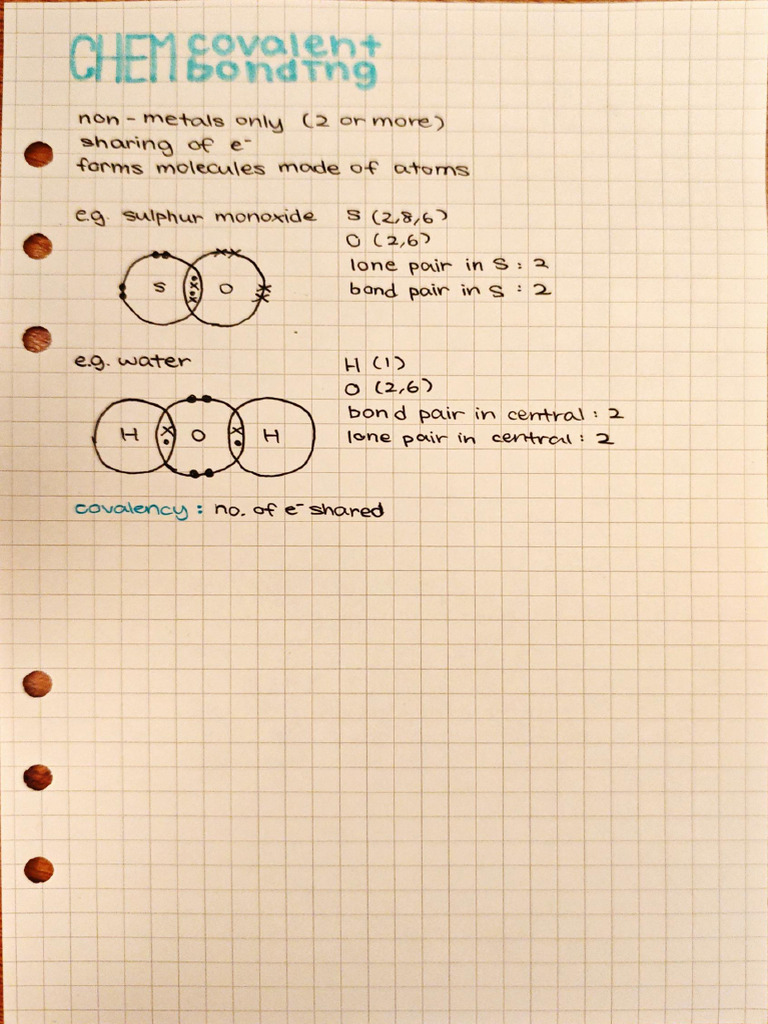 CHEM covalent
bonding
non-metals only (2 or more)
sharing of e⁻
forms molecules made of atoms
e.g. sulphur monoxide
S (2,8,6)
O (2,6)
lone pair in S : 2
bond pair in S : 2
S O
e.g. water
H (1)
O (2,6)
bond pair in central : 2
lone pair in central : 2
H O H
covalency : no. of e⁻ shared